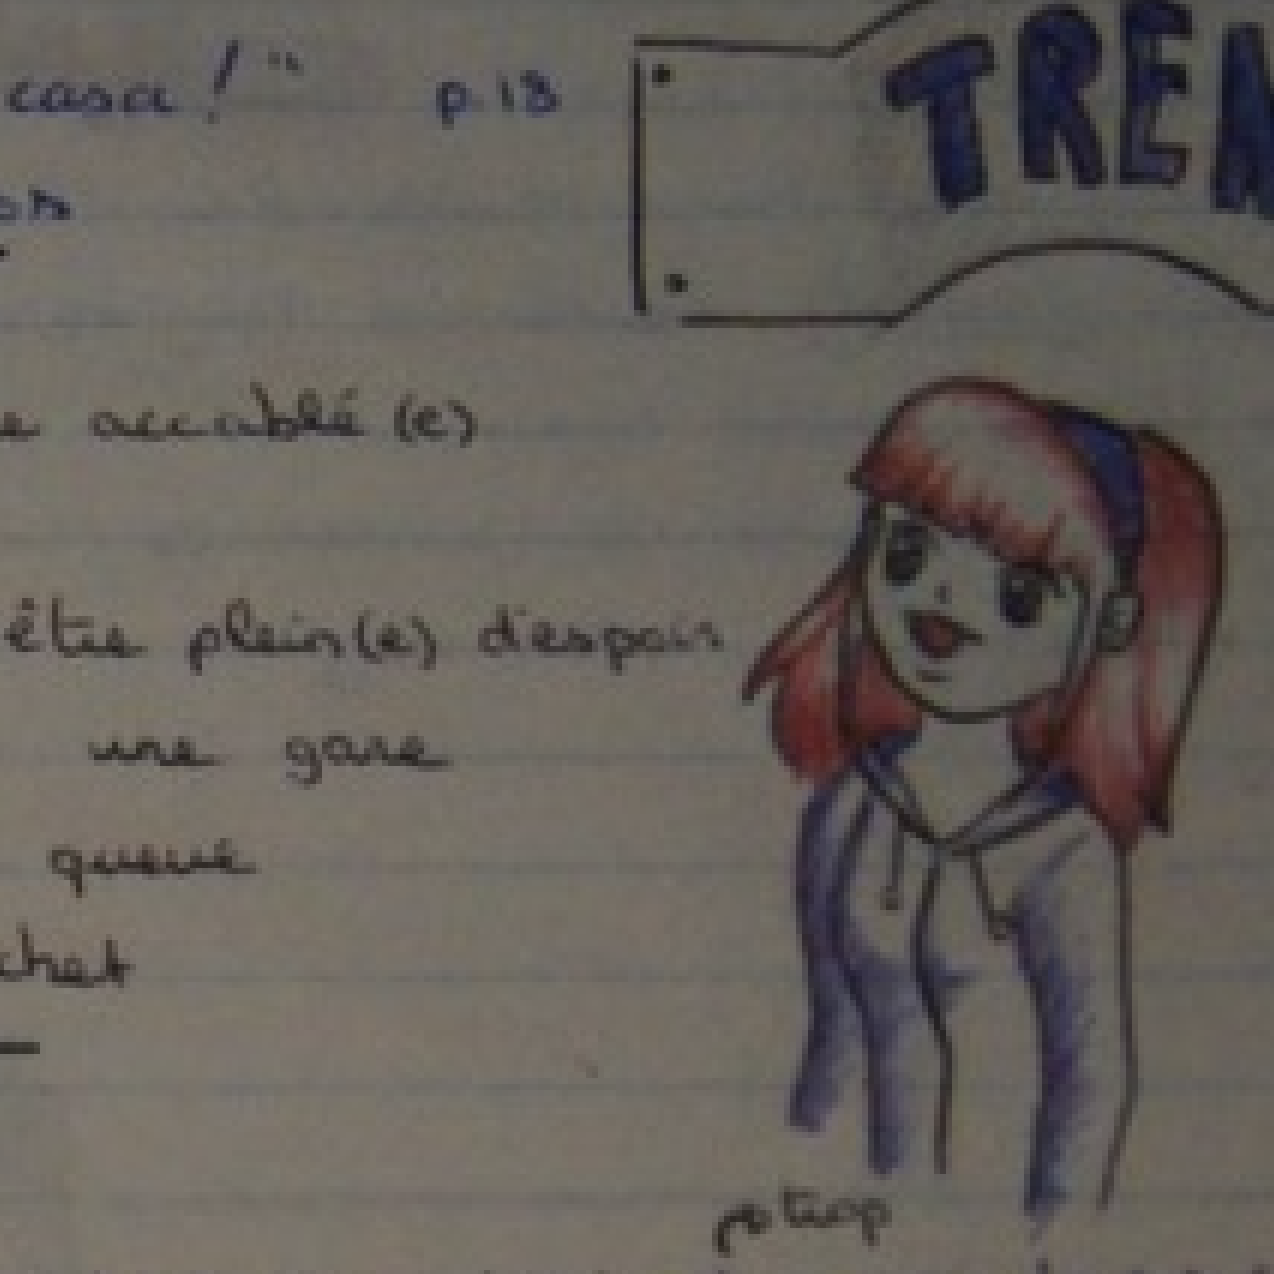 casa ! " p.18
TREN
e accablé (e)
être plein(e) d'espoir
une gare
queue
chet
trop